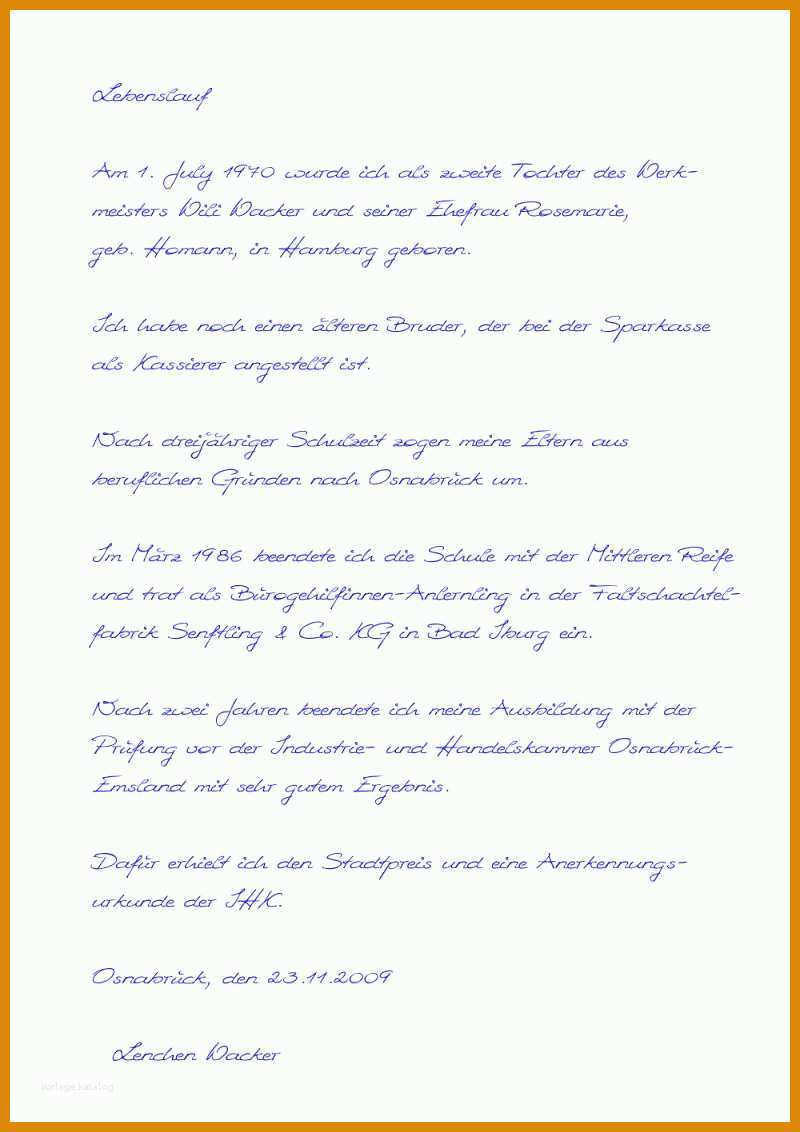 Lebenslauf
Am 1. July 1970 wurde ich als zweite Tochter des Werk-
meisters Wili Wacker und seiner Ehefrau Rosemarie,
geb. Homann, in Hamburg geboren.
Ich habe noch einen älteren Bruder, der bei der Sparkasse
als Kassierer angestellt ist.
Nach dreijähriger Schulzeit zogen meine Eltern aus
beruflichen Gründen nach Osnabrück um.
Im März 1986 beendete ich die Schule mit der Mittleren Reife
und trat als Bürogehilfinnen-Anlernling in der Faltschachtel-
fabrik Senftling & Co. KG in Bad Iburg ein.
Nach zwei Jahren beendete ich meine Ausbildung mit der
Prüfung vor der Industrie- und Handelskammer Osnabrück-
Emsland mit sehr gutem Ergebnis.
Dafür erhielt ich den Stadtpreis und eine Anerkennungs-
urkunde der IHK.
Osnabrück, den 23.11.2009
Lenchen Wacker
vorlage.katalog